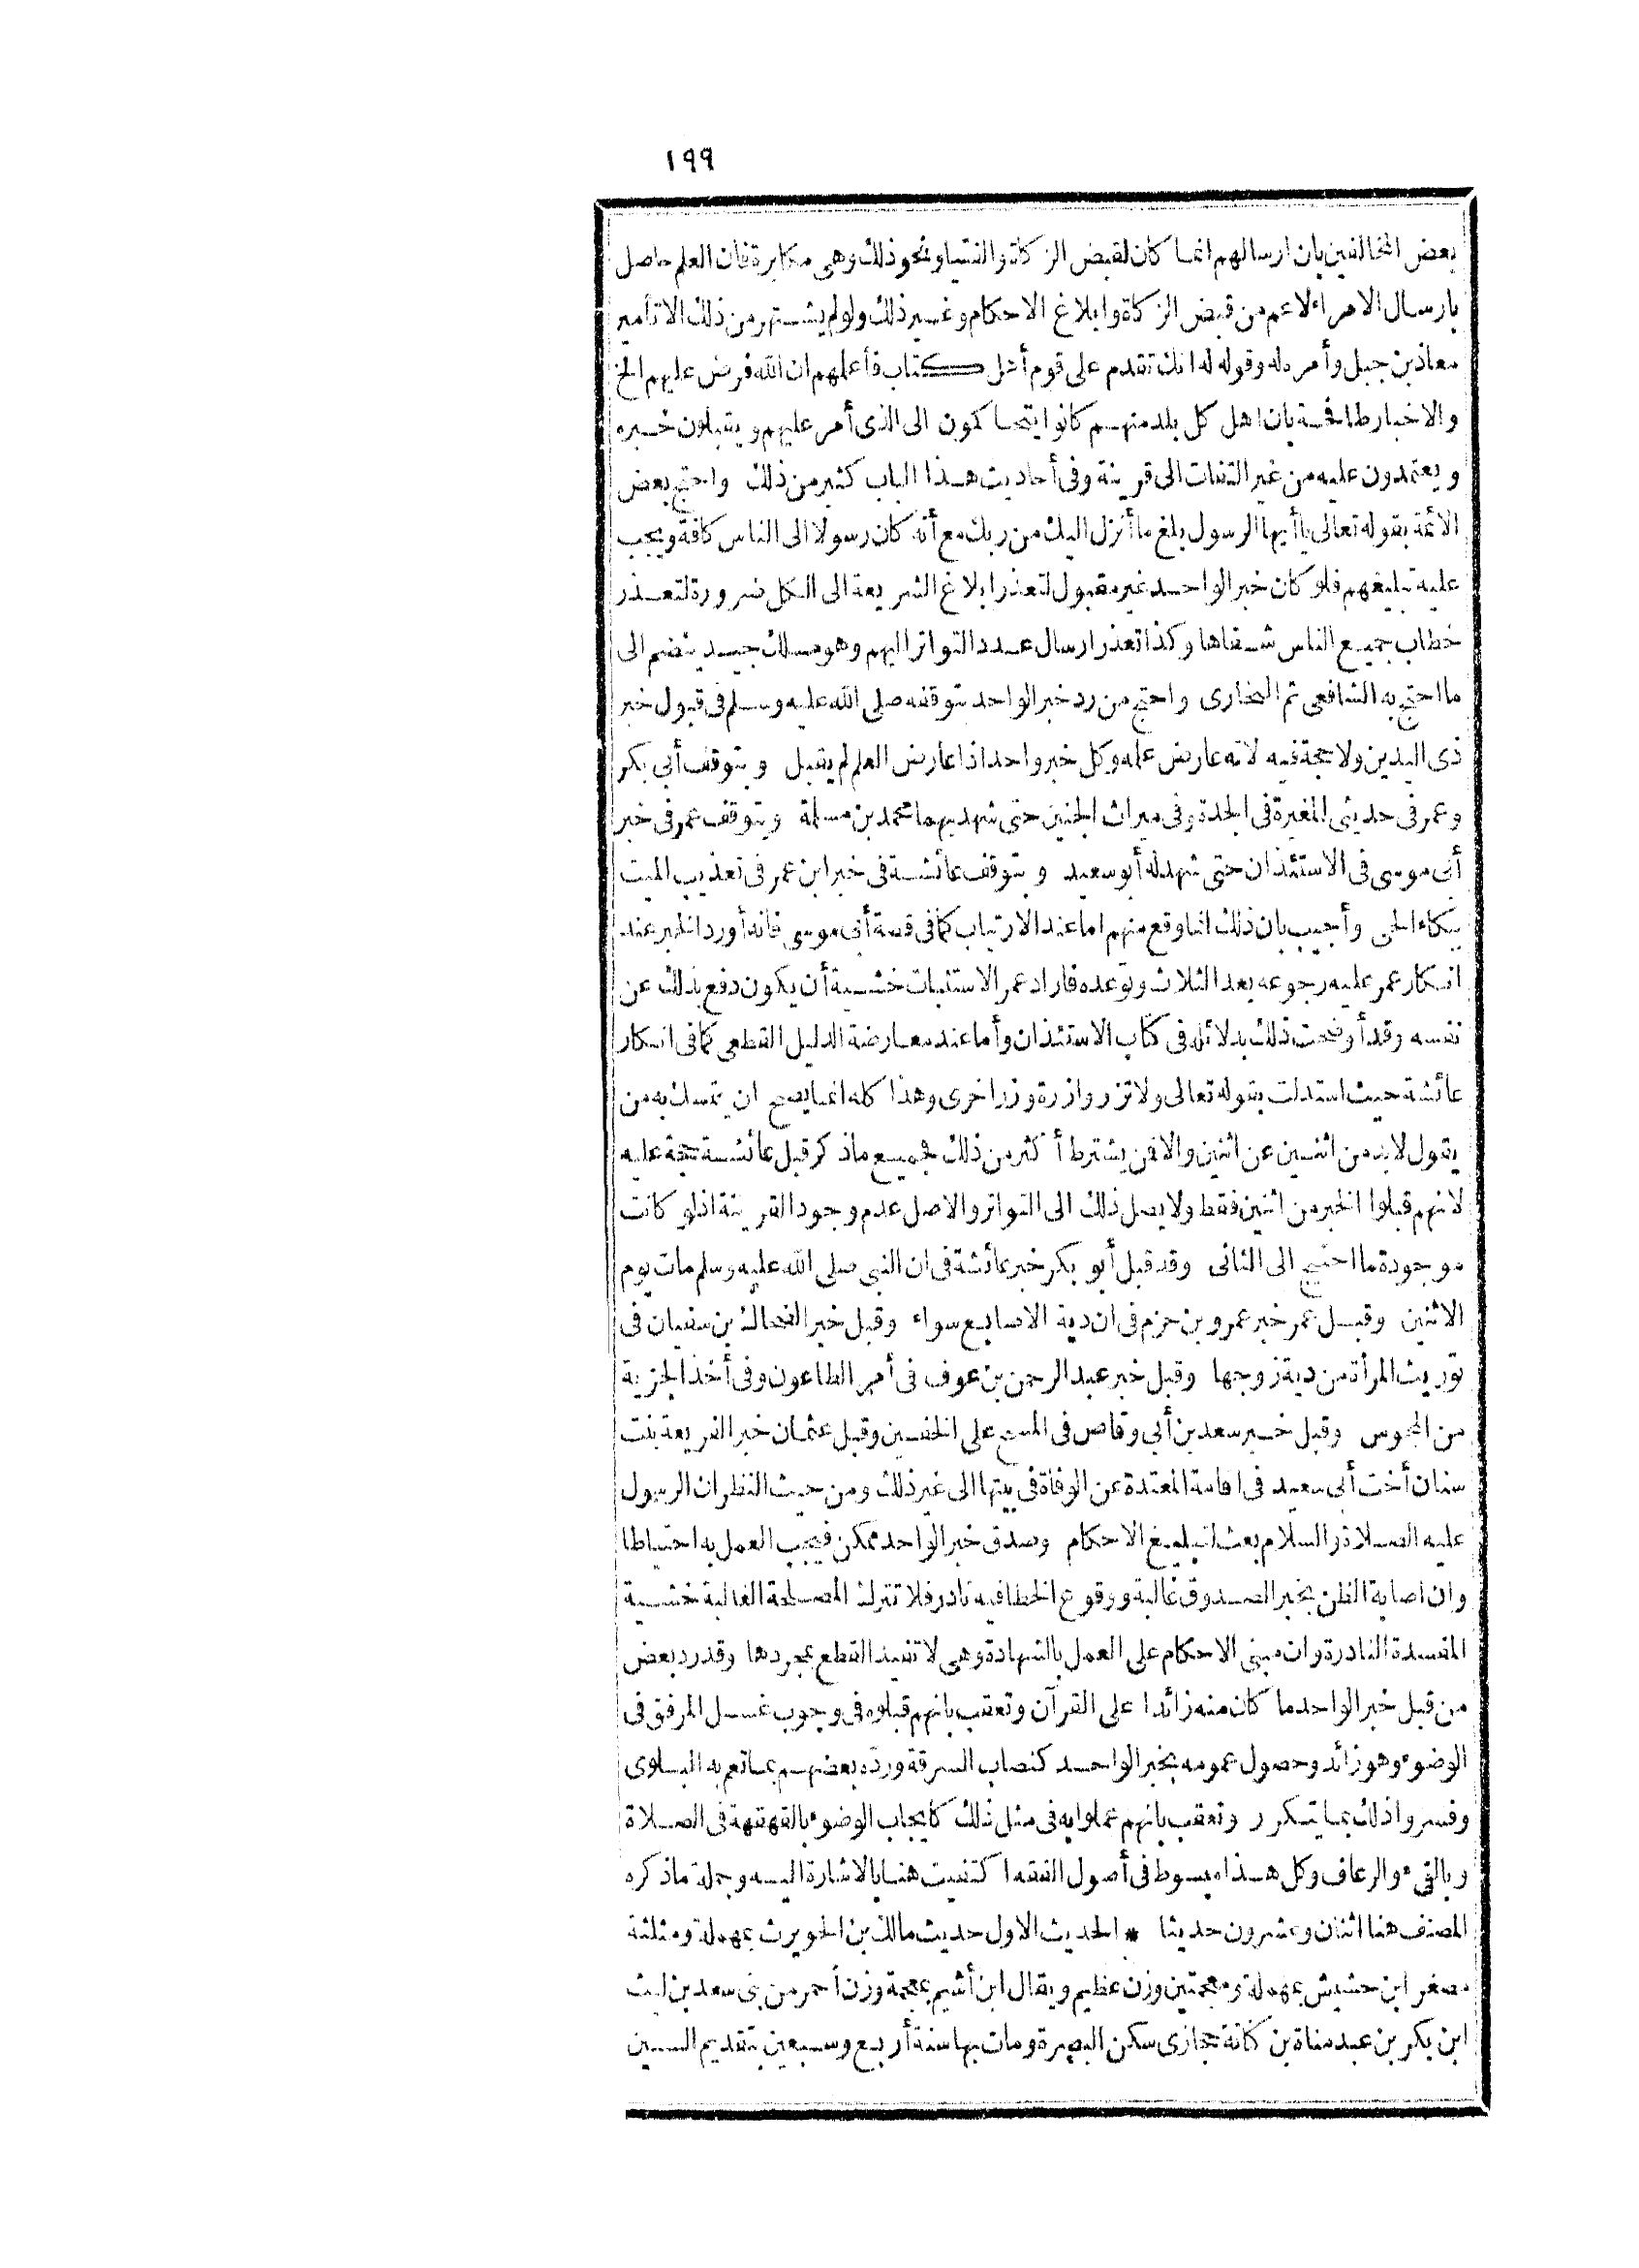 ١٩٩
بعض المخالفين بان ارسالهم انما كان لقبض الزكاة والفتيا ونحو ذلك وهى مكابرة فان العلم حاصل
بارسال الامراء لاعم من قبض الزكاة وابلاغ الاحكام وغير ذلك ولو لم يشتهر من ذلك الا تأمير
معاذ بن جبل وأمره له وقوله له انك تقدم على قوم أهل كتاب فأعلمهم ان الله فرض عليهم الخ
والاخبار طافحة بان اهل كل بلد منهم كانوا يتحاكمون الى الذى أمر عليهم ويقبلون خبره
ويعتمدون عليه من غير التفات الى قرينة وفى أحاديث هذا الباب كثير من ذلك واحتج بعض
الائمة بقوله تعالى ياأيها الرسول بلغ ما أنزل اليك من ربك مع أنه كان رسولا الى الناس كافة ويجب
عليه تبليغهم فلو كان خبر الواحد غير مقبول لتعذر ابلاغ الشريعة الى الكل ضرورة لتعذر
خطاب جميع الناس شفاها وكذا تعذر ارسال عدد التواتر اليهم وهو مسلك جيد ينضم الى
ما احتج به الشافعى ثم البخارى واحتج من رد خبر الواحد بتوقفه صلى الله عليه وسلم فى قبول خبر
ذى اليدين ولا حجة فيه لانه عارض علمه وكل خبر واحد اذا عارض العلم لم يقبل وبتوقف أبى بكر
وعمر فى حديثى المغيرة فى الجدة وفى ميراث الجنين حتى شهد بهما محمد بن مسلمة وبتوقف عمر فى خبر
أبى موسى فى الاستئذان حتى شهد له أبو سعيد وبتوقف عائشة فى خبر ابن عمر فى تعذيب الميت
ببكاء الحى وأجيب بان ذلك انما وقع منهم اما عند الارتياب كما فى قصة أبى موسى فانه أورد الخبر عند
انكار عمر عليه رجوعه بعد الثلاث وتوعده فاراد عمر الاستثبات خشية أن يكون دفع بذلك عن
نفسه وقد أوضحت ذلك بدلائله فى كتاب الاستئذان وأما عند معارضة الدليل القطعى كما فى انكار
عائشة حيث استدلت بقوله تعالى ولا تزر وازرة وزر اخرى وهذا كله انما يصح ان يتمسك به من
يقول لابد من اثنين عن اثنين والا فمن يشترط أكثر من ذلك فجميع ماذكر قبل عائشة حجة عليه
لانهم قبلوا الخبر من اثنين فقط ولا يصل ذلك الى التواتر والاصل عدم وجود القرينة اذ لو كانت
موجودة ما احتيج الى الثانى وقد قبل أبو بكر خبر عائشة فى ان النبى صلى الله عليه وسلم مات يوم
الاثنين وقبل عمر خبر عمرو بن حزم فى ان دية الاصابع سواء وقبل خبر الضحاك بن سفيان فى
توريث المرأة من دية زوجها وقبل خبر عبد الرحمن بن عوف فى أمر الطاعون وفى أخذ الجزية
من المجوس وقبل خبر سعد بن أبى وقاص فى المسح على الخفين وقبل عثمان خبر الفريعة بنت
سنان أخت أبى سعيد فى اقامة المعتدة عن الوفاة فى بيتها الى غير ذلك ومن حيث النظر ان الرسول
عليه الصلاة والسلام بعث لتبليغ الاحكام وصدق خبر الواحد ممكن فيجب العمل به احتياطا
وان اصابة الظن بخبر الصدوق غالبة ووقوع الخطا فيه نادر فلا تترك المصلحة الغالبة خشية
المفسدة النادرة وان مبنى الاحكام على العمل بالشهادة وهى لا تفيد القطع بمجردها وقد رد بعض
من قبل خبر الواحد ما كان منه زائدا على القرآن وتعقب بانهم قبلوه فى وجوب غسل المرفق فى
الوضوء وهو زائد وحصول عمومه بخبر الواحد كنصاب السرقة ورده بعضهم بما تعم به البلوى
وفسروا ذلك بما يتكرر وتعقب بانهم عملوا به فى مثل ذلك كايجاب الوضوء بالقهقهة فى الصلاة
وبالقىء والرعاف وكل هذا مبسوط فى أصول الفقه اكتفيت هنا بالاشارة اليه وجملة ماذكره
المصنف هنا اثنان وعشرون حديثا * الحديث الاول حديث مالك بن الحويرث بمهملة ومثلثة
مصغر ابن حشيش بمهملة ومعجمتين وزن عظيم ويقال ابن أشيم بمعجمة وزن أحمر من بنى سعد بن ليث
ابن بكر بن عبد مناة بن كنانة حجازى سكن البصرة ومات بها سنة أربع وسبعين بتقديم السين